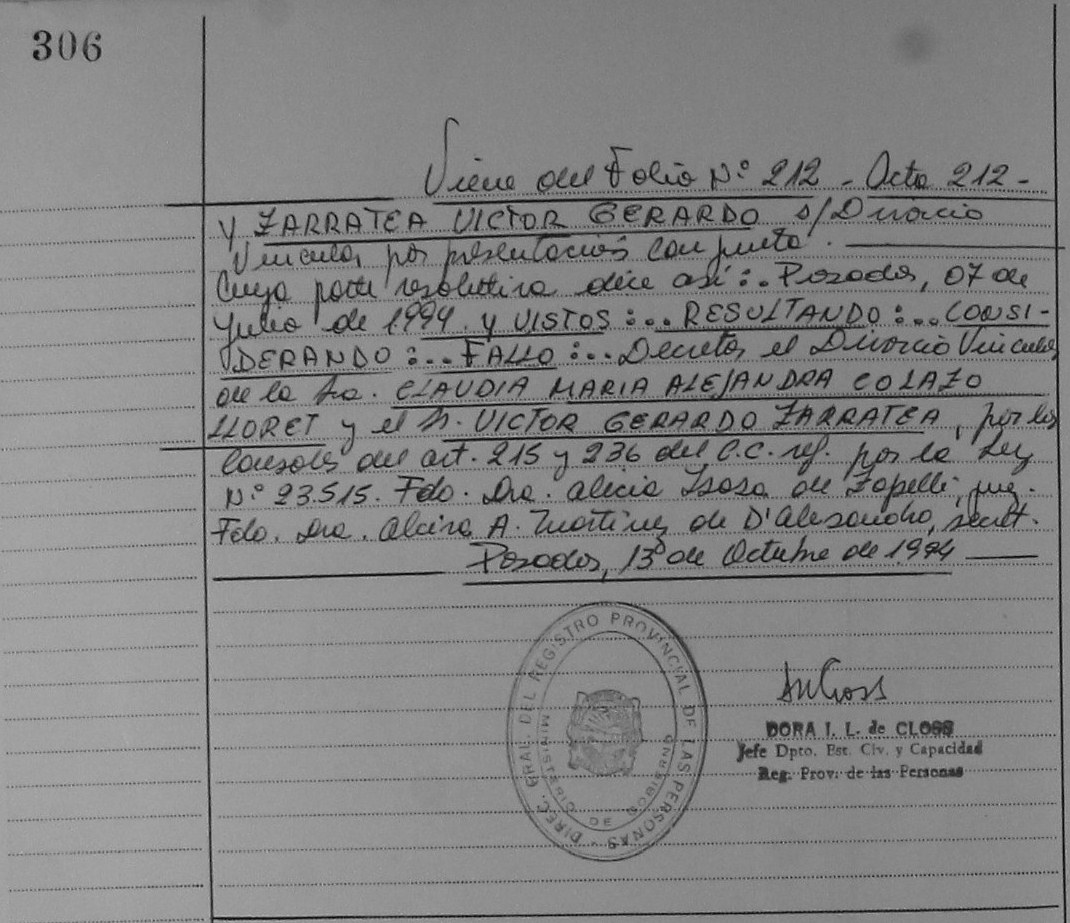 306
Viene del Folio Nº 212 - Acta 212 -
y ZARRATEA VICTOR GERARDO s/Divorcio
Vincular por presentación conjunta.
Cuya parte resolutiva dice así:. Posadas, 07 de
Julio de 1994. y VISTOS:.. RESULTANDO:.. CONSI-
DERANDO:.. FALLO:.. Decretar el Divorcio Vincular
de la Sra. CLAUDIA MARIA ALEJANDRA COLAZO
LLORET y el Sr. VICTOR GERARDO ZARRATEA, por las
causales del art. 215 y 236 del C.C. ref. por la Ley
Nº 23.515. Fdo. Dra. Alicia de Zapelli, juez.
Fdo. Dra. Alcira A. Martinez de D'Alesandro, secret.
Posadas, 13 de Octubre de 1994
DIREC. GRAL. DEL REGISTRO PROVINCIAL DE LAS PERSONAS
MINISTERIO DE GOBIERNO
DORA I. L. de CLOSS
Jefe Dpto. Est. Civ. y Capacidad
Reg. Prov. de las Personas